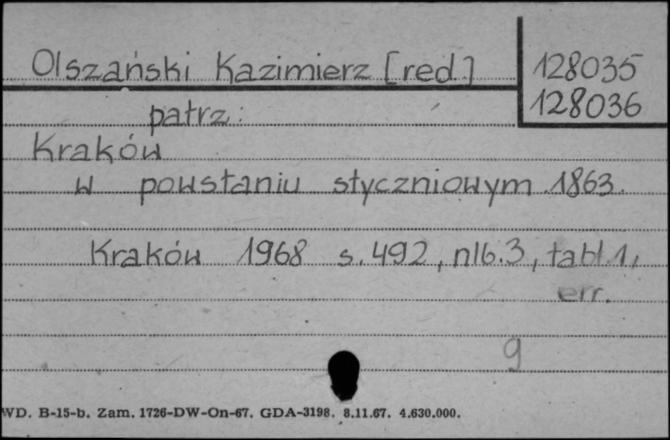 Olszański Kazimierz [red.] 128035
128036
patrz:
Kraków
w powstaniu styczniowym 1863.
Kraków 1968 s. 492, nlb. 3, tabl. 1,
err.
9
WD. B-15-b. Zam. 1726-DW-On-67. GDA-3198. 8.11.67. 4.630.000.